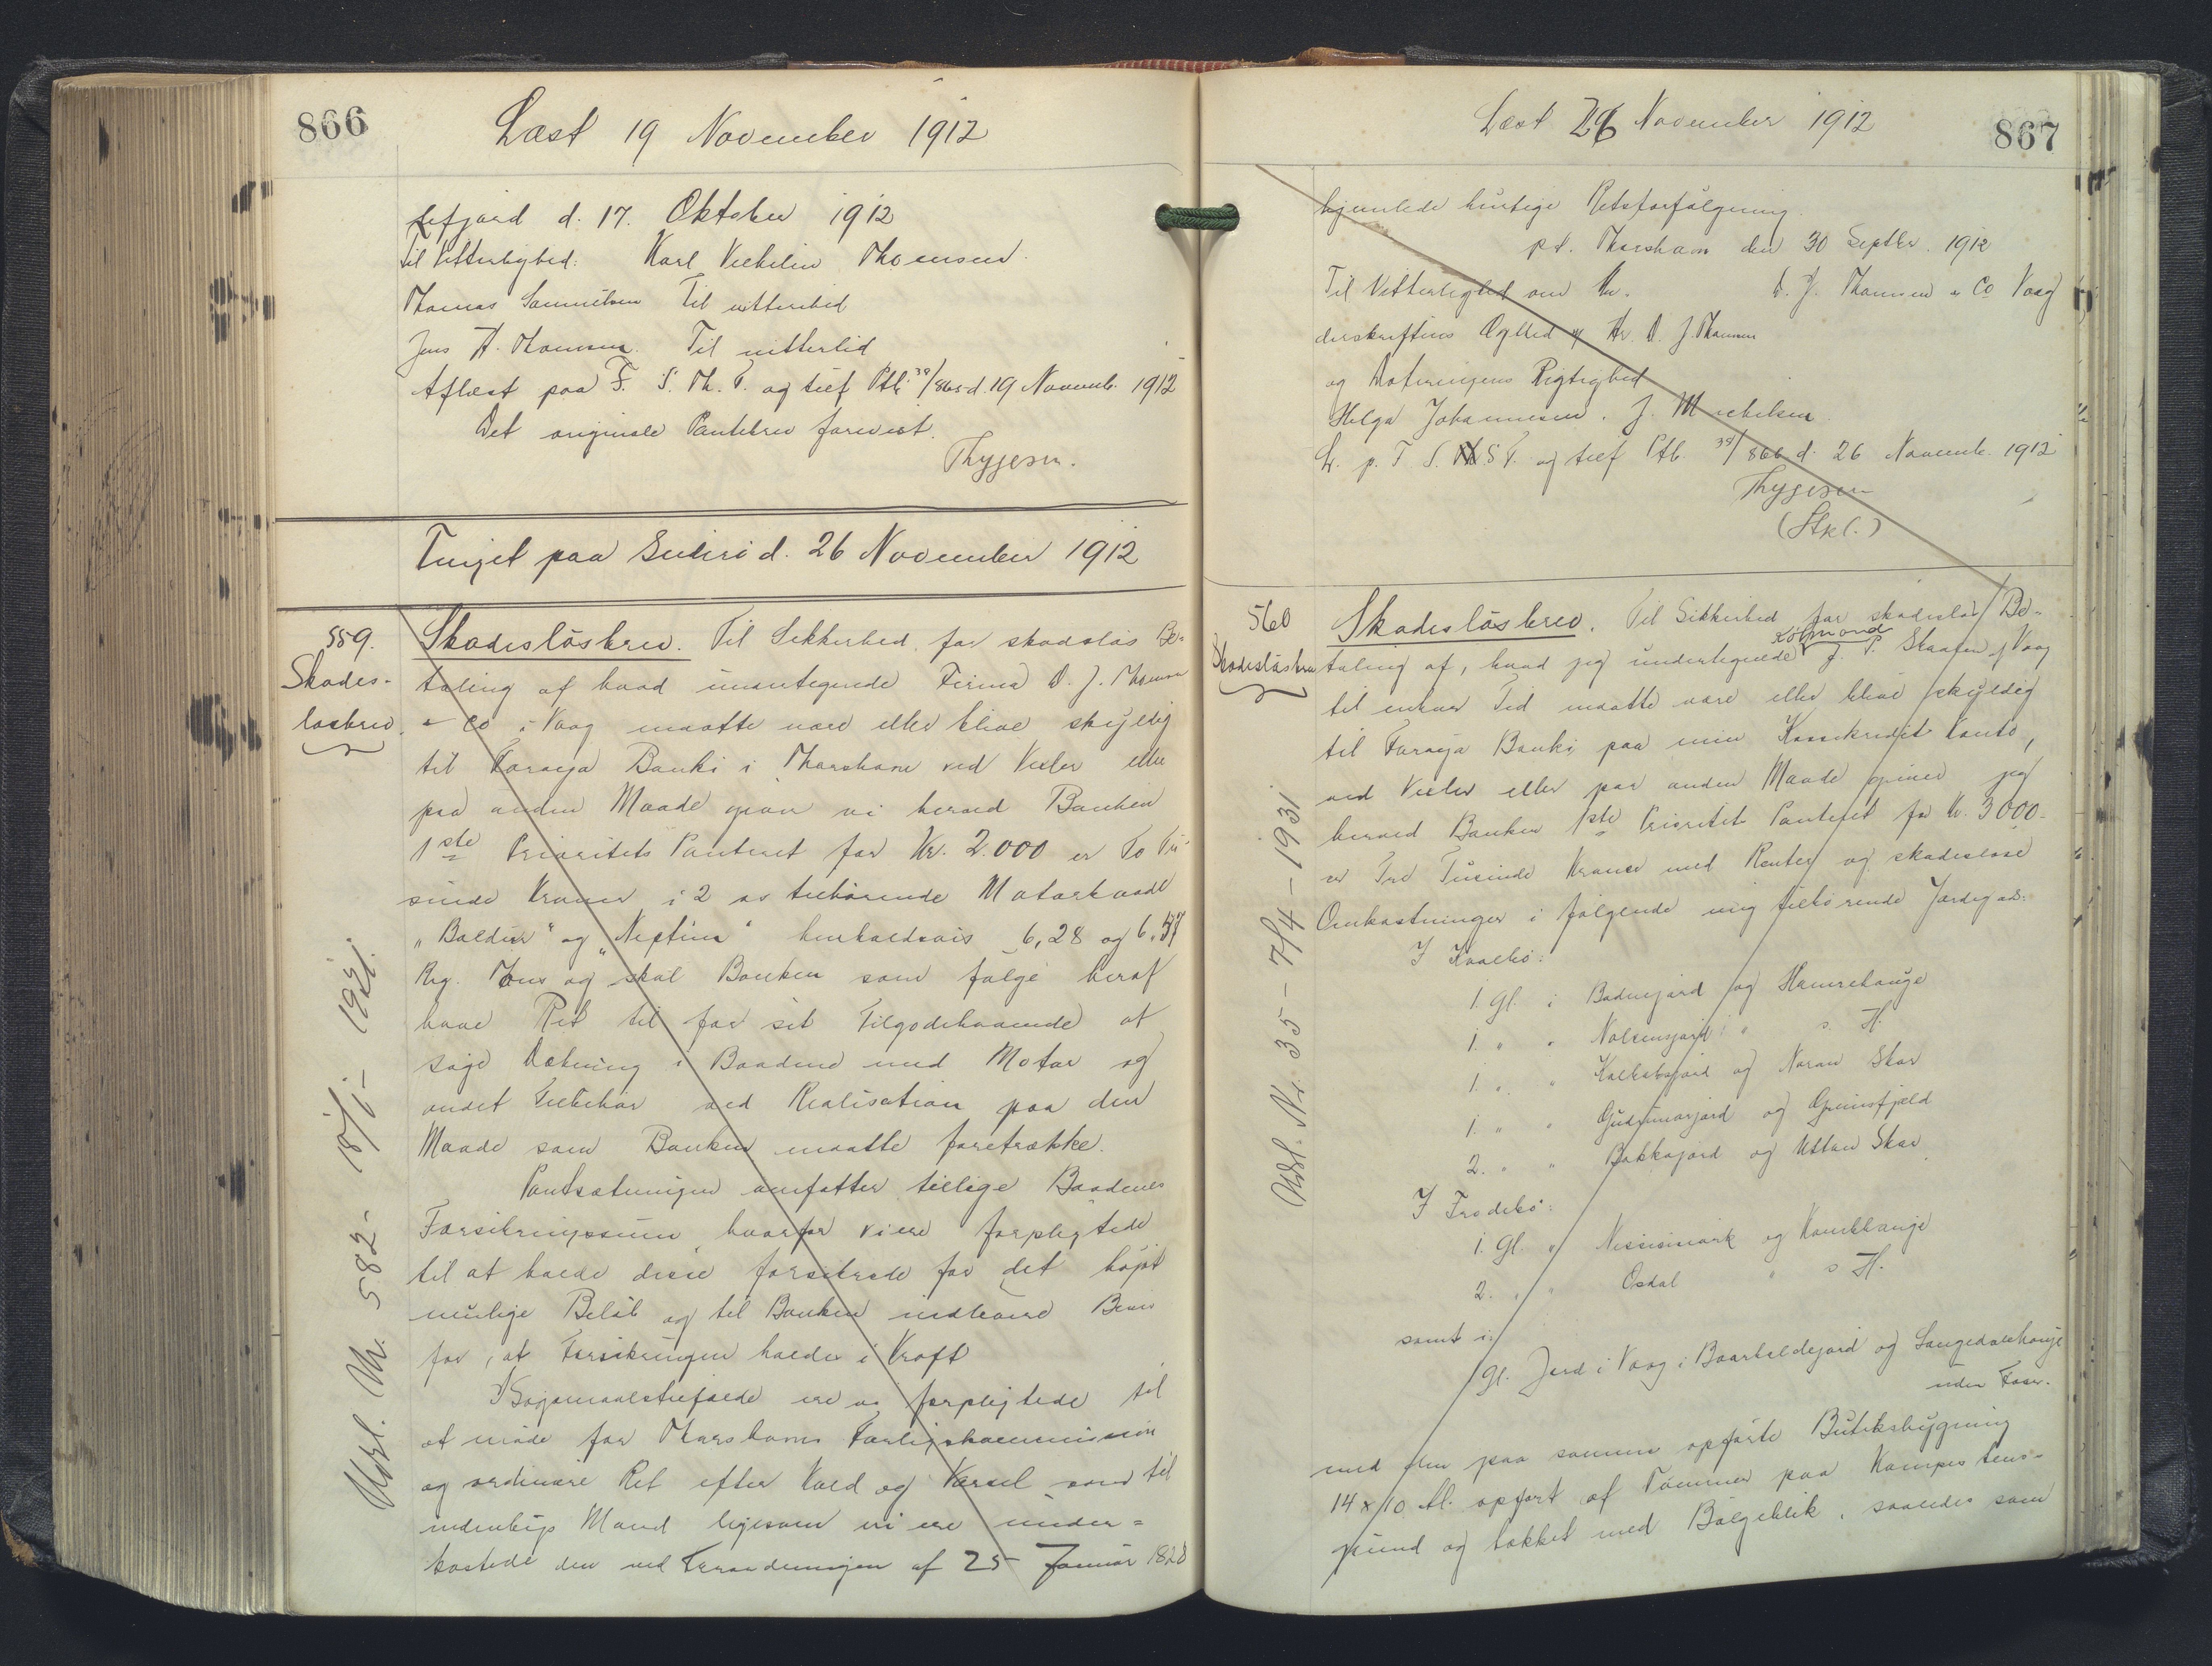 866
Læst 19 November 1912
Lefjord d. 17. Oktober 1912
Til Vitterlighed: Karl Vilhelm Thomsen.
Thomas Samuelsen Til vitterlid
Jens H. Thomsen. Til vitterlid
Aflæst paa F. S. Th. P. og tilf Ptb. 38/865 d. 19 Novemb. 1912
Det originale Pantebrev forevist.
Thygesen.
Tinget paa Suderö d. 26 November 1912
559.
Skades-
løsbrev.
Skadesløsbrev. Til Sikkerhed for skadesløs Be-
taling af hvad undertegnede Firma D. J. Thomsen
& Co i Vaag maatte være eller blive skyldig
til Føroya Banki i Thorshavn ved Vexler eller
paa anden Maade giver vi herved Banken
1ste Prioritets Panteret for Kr. 2.000 er To Tu-
sinde Kroner i 2 os tilhørende Motorbaade
"Baldur" og "Neptun" henholdsvis 6,28 og 6,57
Reg. Tons og skal Banken som følge heraf
have Ret til for sit Tilgodehavende at
søge Dækning i Baadene med Motor og
andet Tilbehør ved Realisation paa den
Maade som Banken maatte foretrække.
Pantsætningen omfatter tillige Baadenes
Forsikringssum hvorfor vi ere forpligtede
til at holde disse forsikrede for det højst
mulige Beløb og til Banken indlevere Bevis
for, at Forsikringen holdes i Kraft
I Søgsmaalstilfælde ere vi forpligtede til
at møde for Thorshavns Forligskommission
og ordinære Ret efter Kald og Varsel som til
indenbys Mand ligesom vi ere under=
kastede den ved Forordningen af 25 Januar 1828
Udsl. Nr. 582 - 18/1 - 1921.
Læst 26 November 1912
867
hjemlede hurtige Retsforfølgning.
pt. Thorshavn den 30 Septbr. 1912
Til Vitterlighed om Un- D. J. Thomsen & Co Vaag
derskriftens Ægthed af Hr. D. J. Thomsen
og Dateringens Rigtighed
Helga Johannesen. J. Michelsen
L. p. T S. S P. og tilf Ptb. 38/866 d. 26 Novemb. 1912
Thygesen
(Stkl.)
560
Skadesløsbrev
Skadesløsbrev. Til Sikkerhed for skadesløs Be-
Købmand
taling af, hvad jeg undertegnede J. P. Skaafen af Vaag
til enhver Tid maatte være eller blive skyldig
til Føroya Banki paa min Kassekredit Konto,
ved Vexler eller paa anden Maade giver jeg
herved Banken 1ste Prioritet Panteret for Kr. 3000-
er Tre Tusinde Kroner med Renter og skadesløse
Omkostninger i følgende mig tilhørende Jordegods:
I Kvalbö:
1. Gl. i Bødnejord og Hamrehauge
1. " " Nolsensjord " s. H.
1. " " og Noran Skar
1. " " Gudrunarjord og Grimsfjeld
2. " " Bakkajord og Uttan Skar
I Frodebö:
1. Gl. " Nessismark og Kamblhauge
2. " " Ösdal " s H.
samt i
Gl. Jord i Vaag i Baarheldejord og Langedalehauge
uden Faar.
med den paa samme opførte Butiksbygning
14 x 10 Al. opført af Tømmer paa Kampestens-
grund og takket med Bølgeblik, saaledes som
Udsl. Nr. 35 - 7/4 - 1931